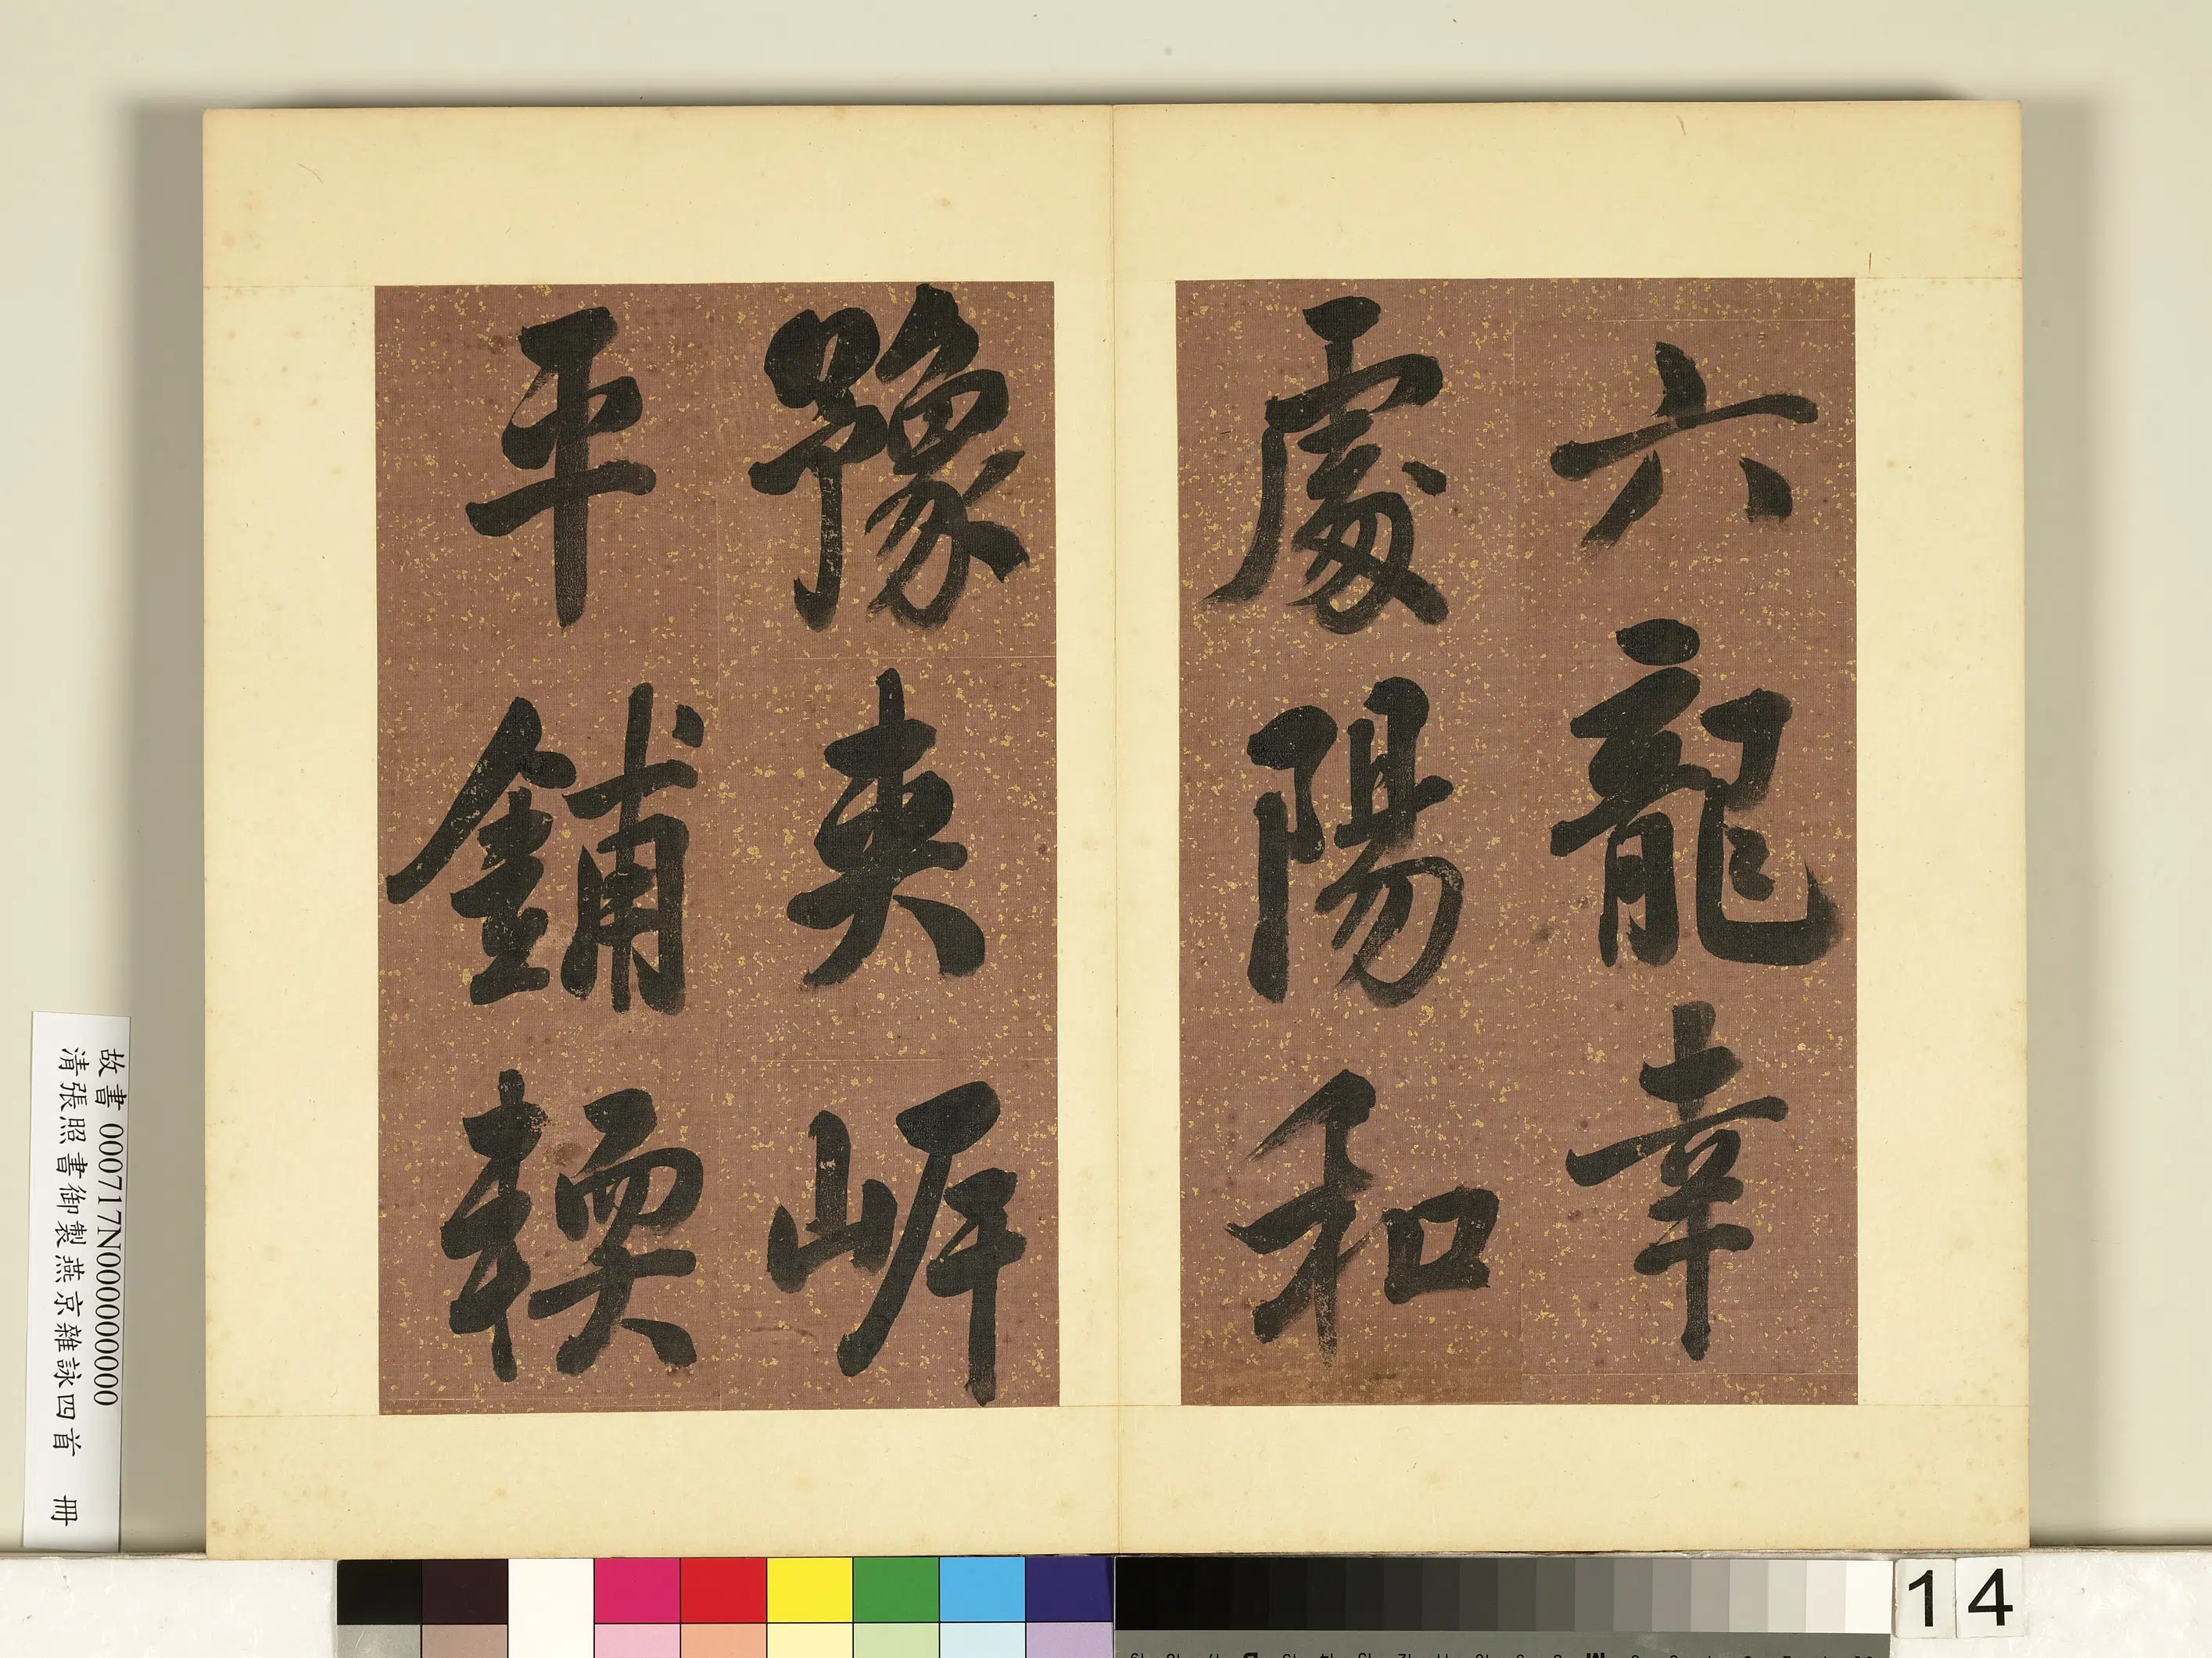 六龍幸
處陽和
豫夾岍
平鋪輭
故書000717N000000000
清張照書御製燕京雜詠四首 冊
14